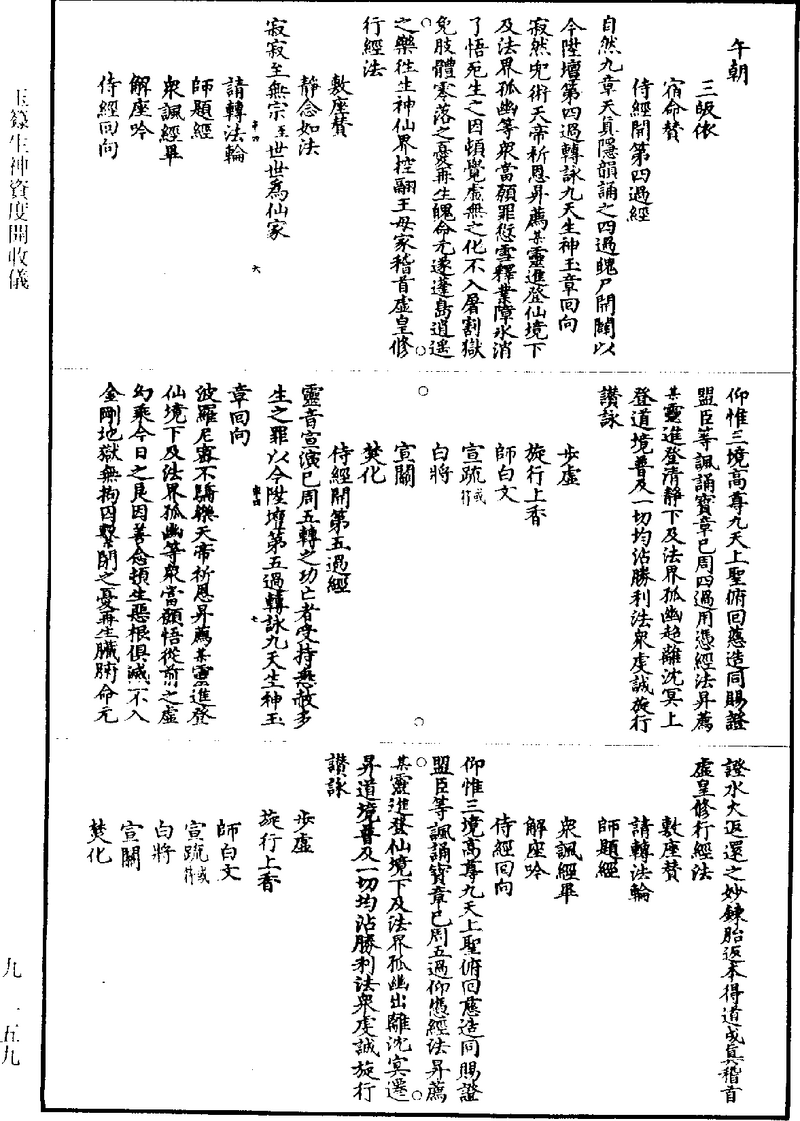 午朝
三皈依
宿命贊
侍經開第四過經
自然九章天真隱韻誦之四過魄尸開關以
今陞壇第四過轉詠九天生神玉章回向
寂然兜術天帝祈恩昇薦某靈進登仙境下
及法界孤幽等衆當願罪愆雪釋業障氷消
了悟死生之因頓覺虛無之化不入屠割獄
免肢體零落之憂再生魄命元遂蓬島逍遥
之樂徃生神仙界控翮王母家稽首虛皇修
行經法
敷座贊
靜念如法
寂寂至無宗至世世為仙家
請轉法輪
師題經
衆諷經畢
解座吟
侍經回向
仰惟三境高尊九天上聖俯回慈造同賜證
盟臣等諷誦寶章已周四過用憑經法昇薦
某靈進登清静下及法界孤幽超離沈冥上
登道境普及一切均沾勝利法衆虔誠旋行
讃詠
步虛
旋行上香
師白文
宣䟽或符
白將
宣關
焚化
侍經開第五過經
靈音宣演已周五轉之功亡者受持悉赦多
生之罪以今陞壇第五過轉詠九天生神玉
章回向
波羅尼宻不驕樂天帝祈恩昇薦某靈進登
仙境下及法界孤幽等衆當願悟從前之虛
幻乘今日之良因善念頓生惡根俱滅不入
金剛地獄無拘囚繫閉之憂再生臟腑命元
證水火返還之妙鍊胎返本得道成真稽首
虛皇修行經法
敷座贊
請轉法輪
師題經
衆諷經畢
解座吟
侍經回向
仰惟三境高尊九天上聖俯回慈造同賜證
盟臣等諷誦寶章已周五過仰憑經法昇薦
某靈進登仙境下及法界孤幽出離沈冥遷
昇道境普及一切均沾勝利法衆虔誠旋行
讃詠
步虛
旋行上香
師白文
宣䟽或符
白將
宣關
焚化
玉籙生神資度開收儀
九 一 五九